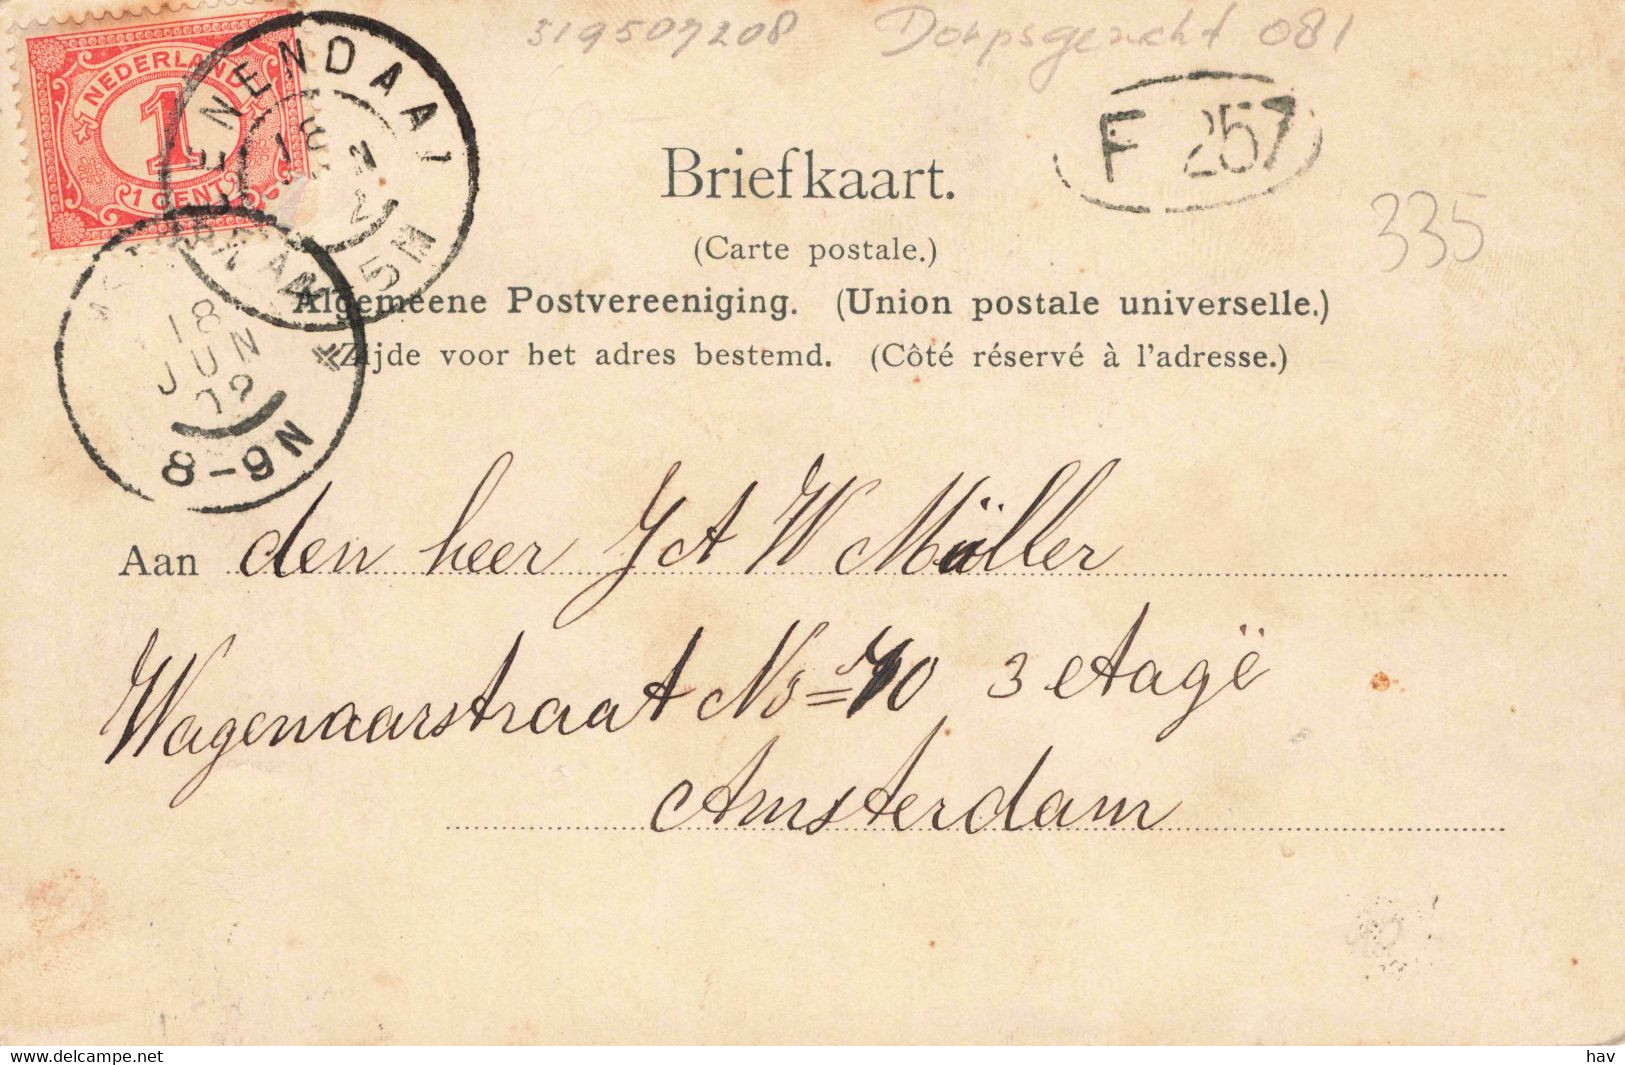 319507208 Dorpsgezicht 081
NEDERLAND
1
1 CENT
F 257
335
Briefkaart.
(Carte postale.)
Algemeene Postvereeniging. (Union postale universelle.)
Zijde voor het adres bestemd. (Côté réservé à l'adresse.)
18
JUN
02
8-9N
Aan den heer J A W Müller
Wagenaarstraat No= 3 etagë
Amsterdam
www.delcampe.net
hav